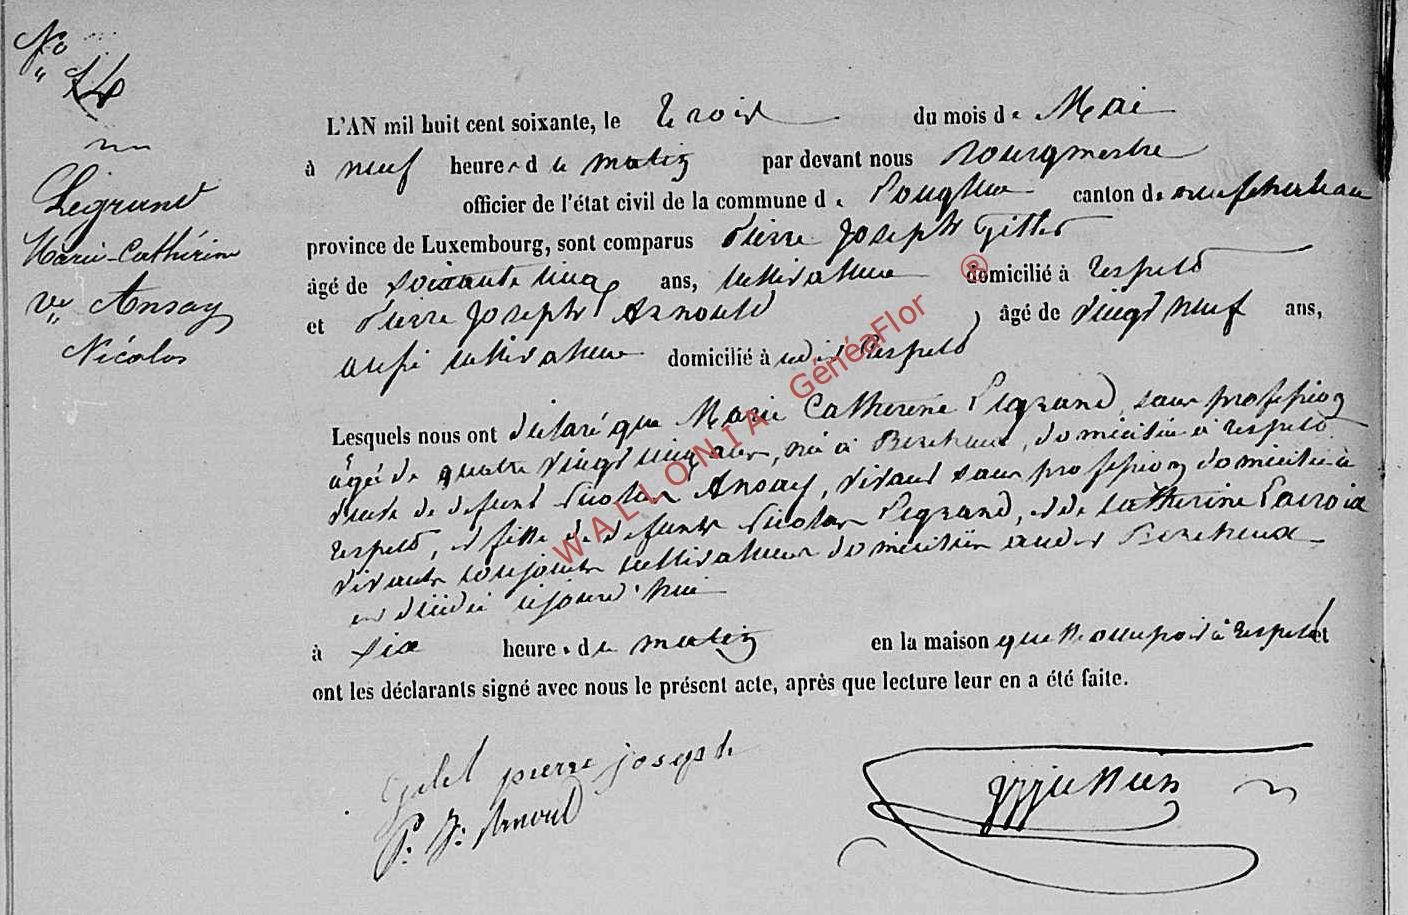 No
" 14
Legrand
Marie-Cathérine
Ve Ansay
Nicolas
L'AN mil huit cent soixante, le trois du mois de Mai
à neuf heures du matin par devant nous Bourgmestre
officier de l'état civil de la commune de Longlier canton de neufchateau
province de Luxembourg, sont comparus Pierre Joseph Gillet
âgé de soixante cinq ans, cultivateur domicilié à Respelt
et Pierre Joseph Arnould, âgé de vingt neuf ans,
aussi cultivateur domicilié à udit Respelt
Lesquels nous ont déclaré que Marie Catherine Legrand, sans profession
âgée de quatre vingt cinq ans, née à Bercheux, domiciliée à Respelt
veuve de defunt Nicolas Ansay, vivant sans profession domicilié à
Respelt, et fille de defunts Nicolas Legrand, et de Catherine Lacroix
vivants conjoints cultivateurs domiciliés audit Bercheux
est décédée cejourd'hui
à six heures du matin en la maison qu'elle occupoit à Respelt et
ont les déclarants signé avec nous le présent acte, après que lecture leur en a été faite.
Gilet pierre joseph
P: J: Arnould
WALLONIA GénéaFlor ®